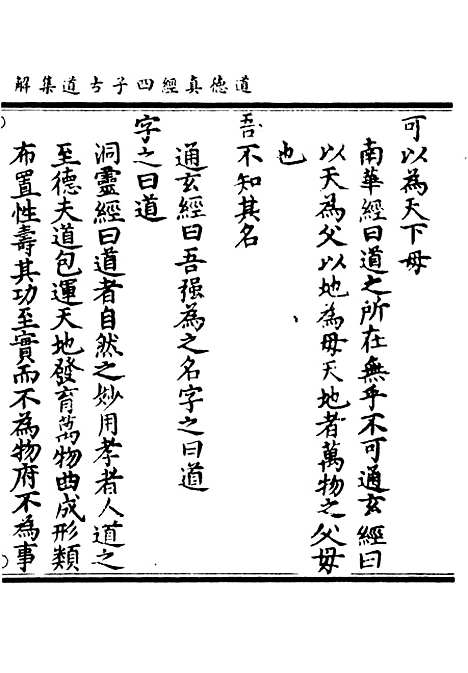 道德真經四子古道集解
可以為天下母
南華經曰道之所在無乎不可通玄經曰
以天為父以地為母天地者萬物之父母
也
吾不知其名
通玄經曰吾强為之名字之曰道
字之曰道
洞靈經曰道者自然之妙用孝者人道之
至德夫道包運天地發育萬物曲成形類
布置性壽其功至實而不為物府不為事